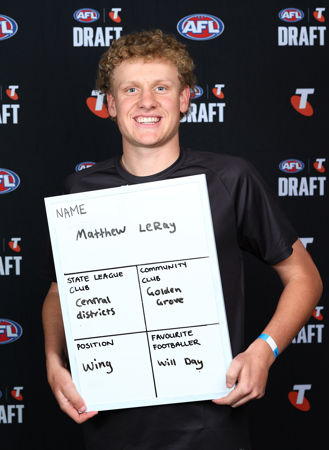 AFL
DRAFT
AFL
AFL
DRAFT
AFL
DRAFT
AFL
DRAFT
AFL
AFL
DRAFT
NAME
Matthew LeRay
STATE LEAGUE
CLUB
Central
districts
COMMUNITY
CLUB
Golden
Grove
POSITION
Wing
FAVOURITE
FOOTBALLER
Will Day
AFL
DRAFT
AFL
DRAFT